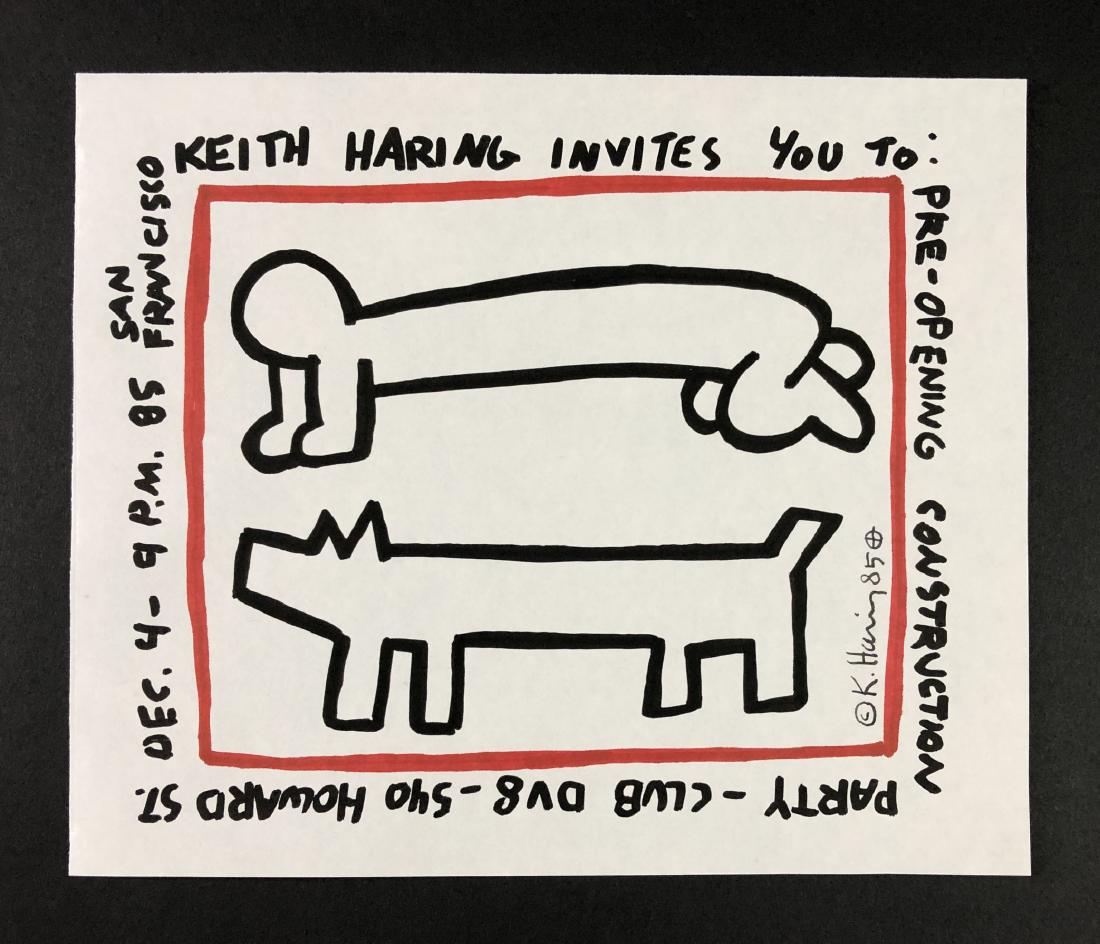 KEITH HARING INVITES YOU TO:
PRE-OPENING CONSTRUCTION
PARTY - CLUB DV8 - 540 HOWARD ST.
DEC. 4 - 9 P.M. 85 SAN
FRANCISCO
© K. Haring 85